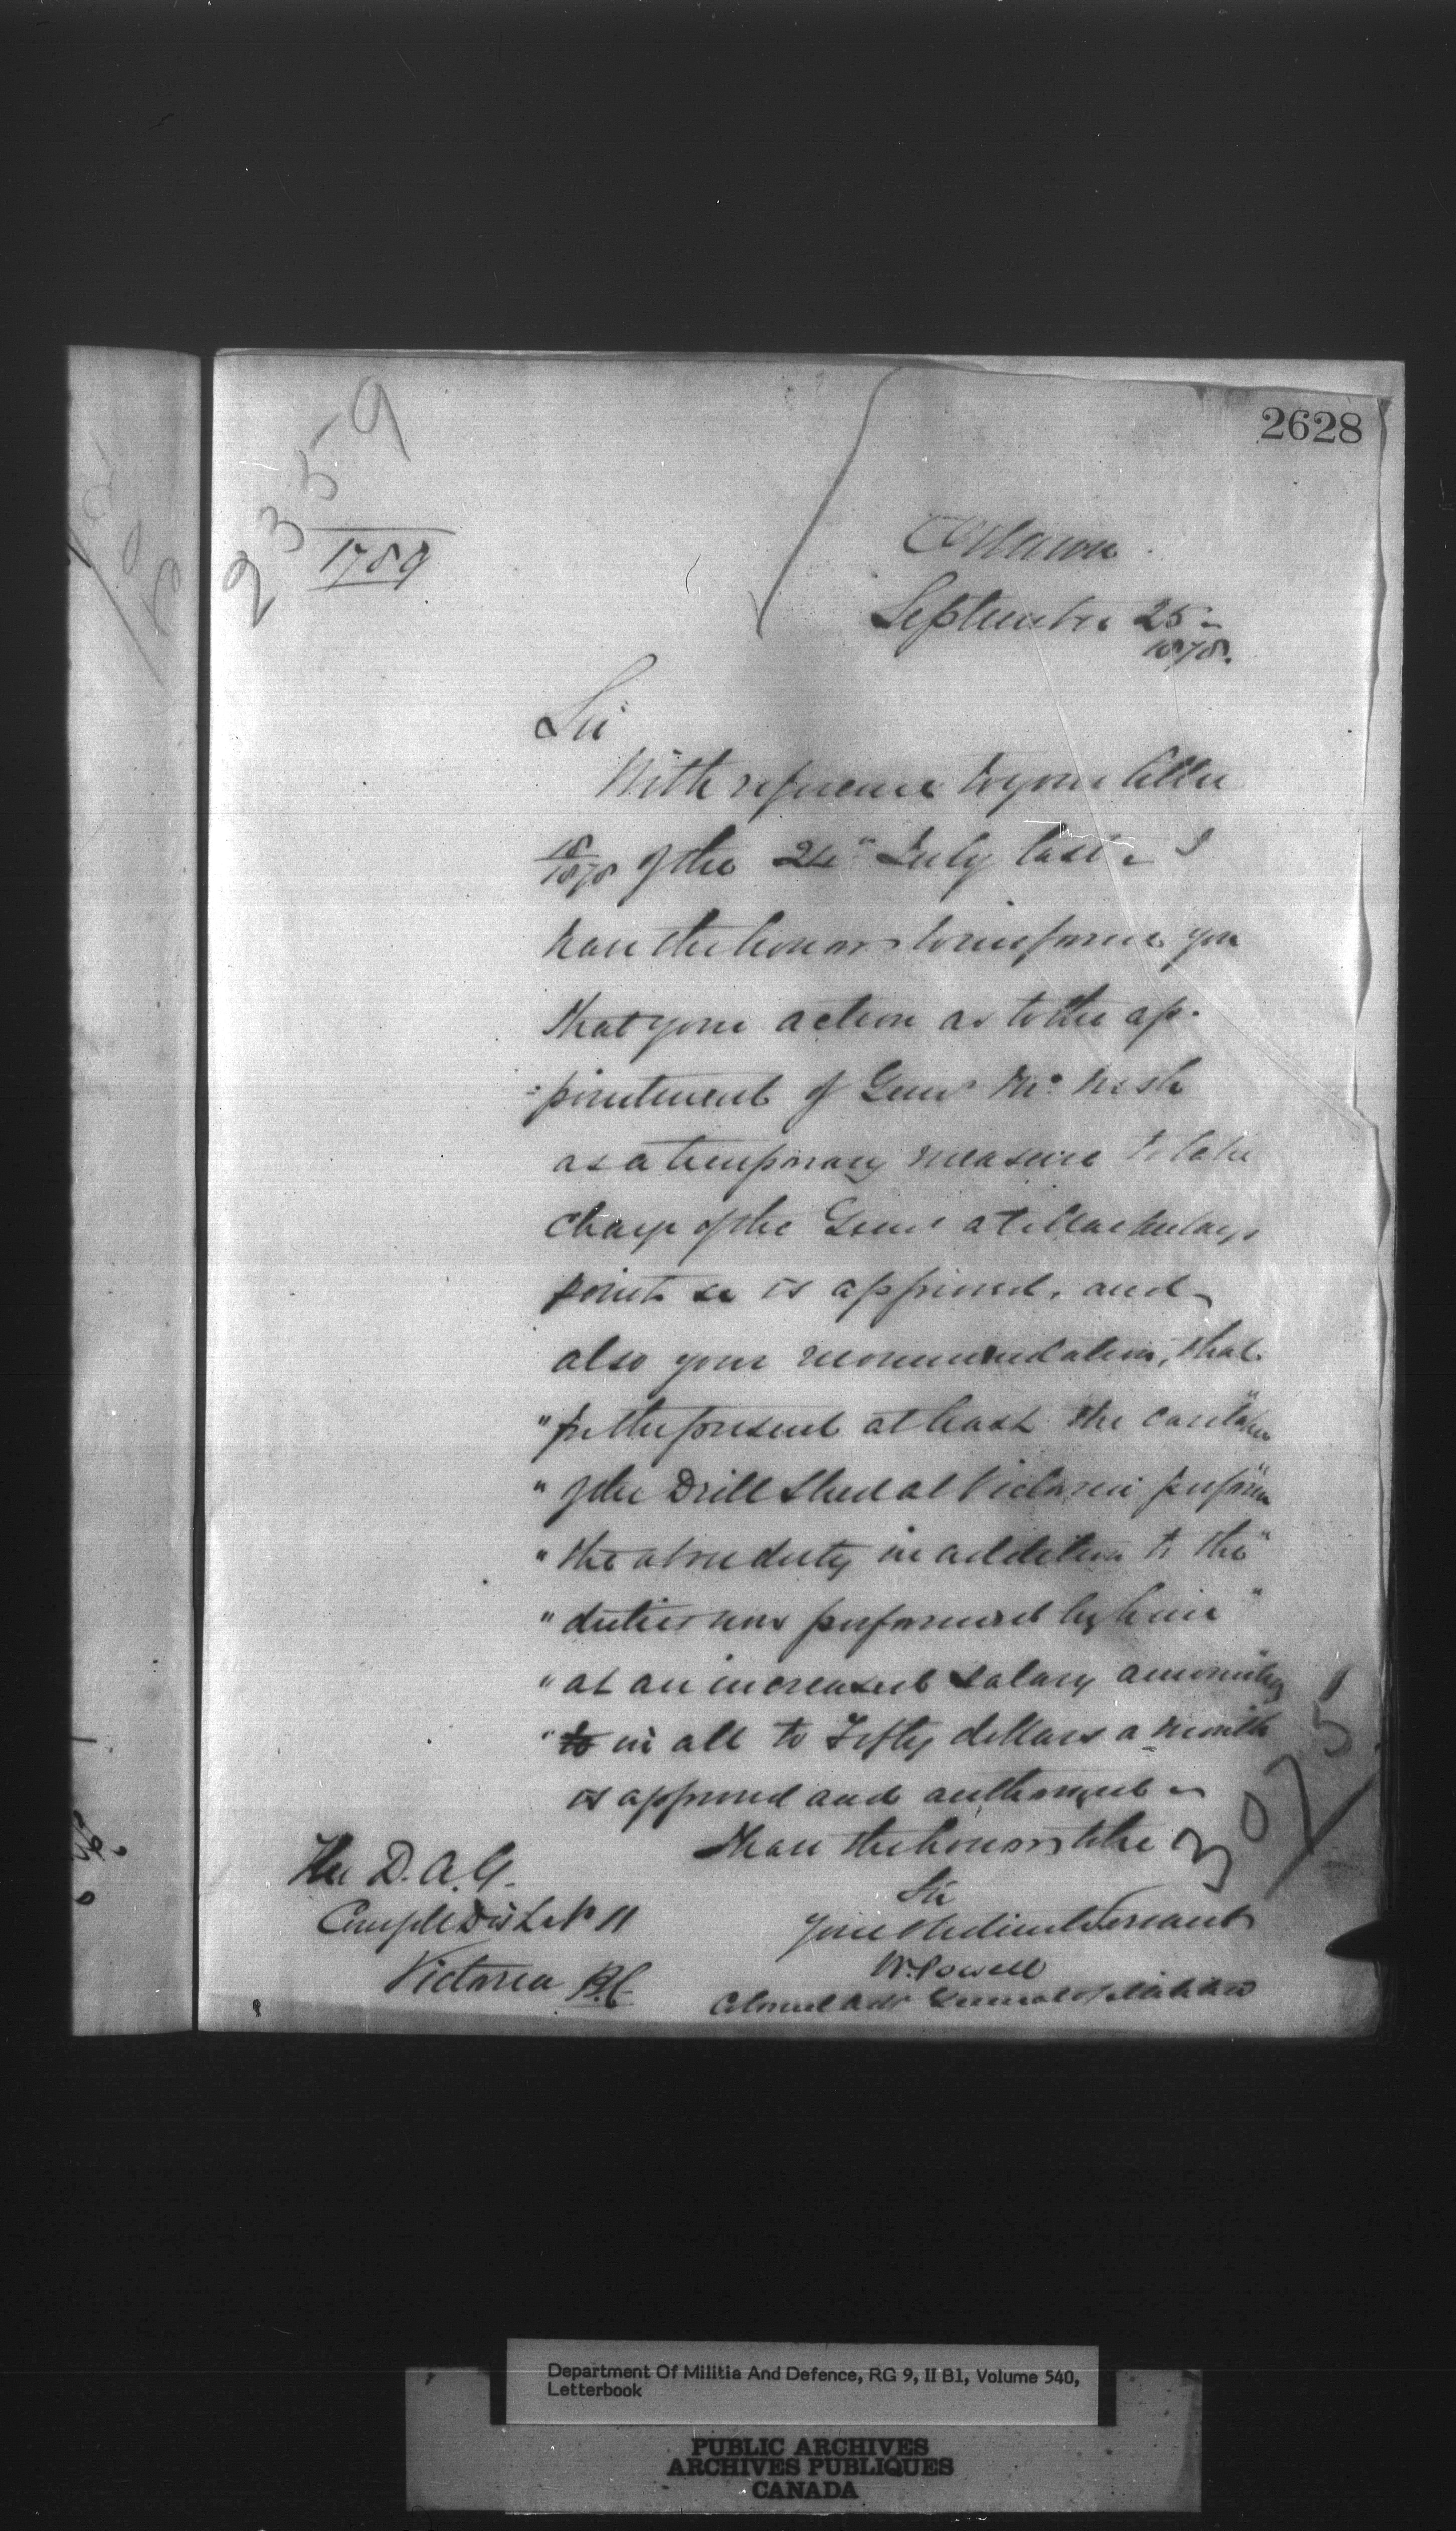 2628
2359
1789
Ottawa
September 25
1878.
Sir
With reference to your letter
18/1878 of the 24" July last I
have the honor to inform you
that your action as to the ap-
-pointment of Gunr McNish
as a temporary measure to take
charge of the Guns at Macaulays
point is approved, and
also your recommendation, that
"for the present at least the caretaker"
"of the Drill Shed at Victoria perform"
"the above duty in addition to the"
"duties now performed by him"
"at an increased salary amounting"
"to in all to Fifty dollars a month
is approved and authorized
I have the honor to be
Sir
Your Obedient Servant
W. Powell
Colonel Adjt General of Militia
The D.A.G.
Comdg Dist No 11
Victoria B.C.
3025
Department Of Militia And Defence, RG 9, II B1, Volume 540,
Letterbook
PUBLIC ARCHIVES
ARCHIVES PUBLIQUES
CANADA